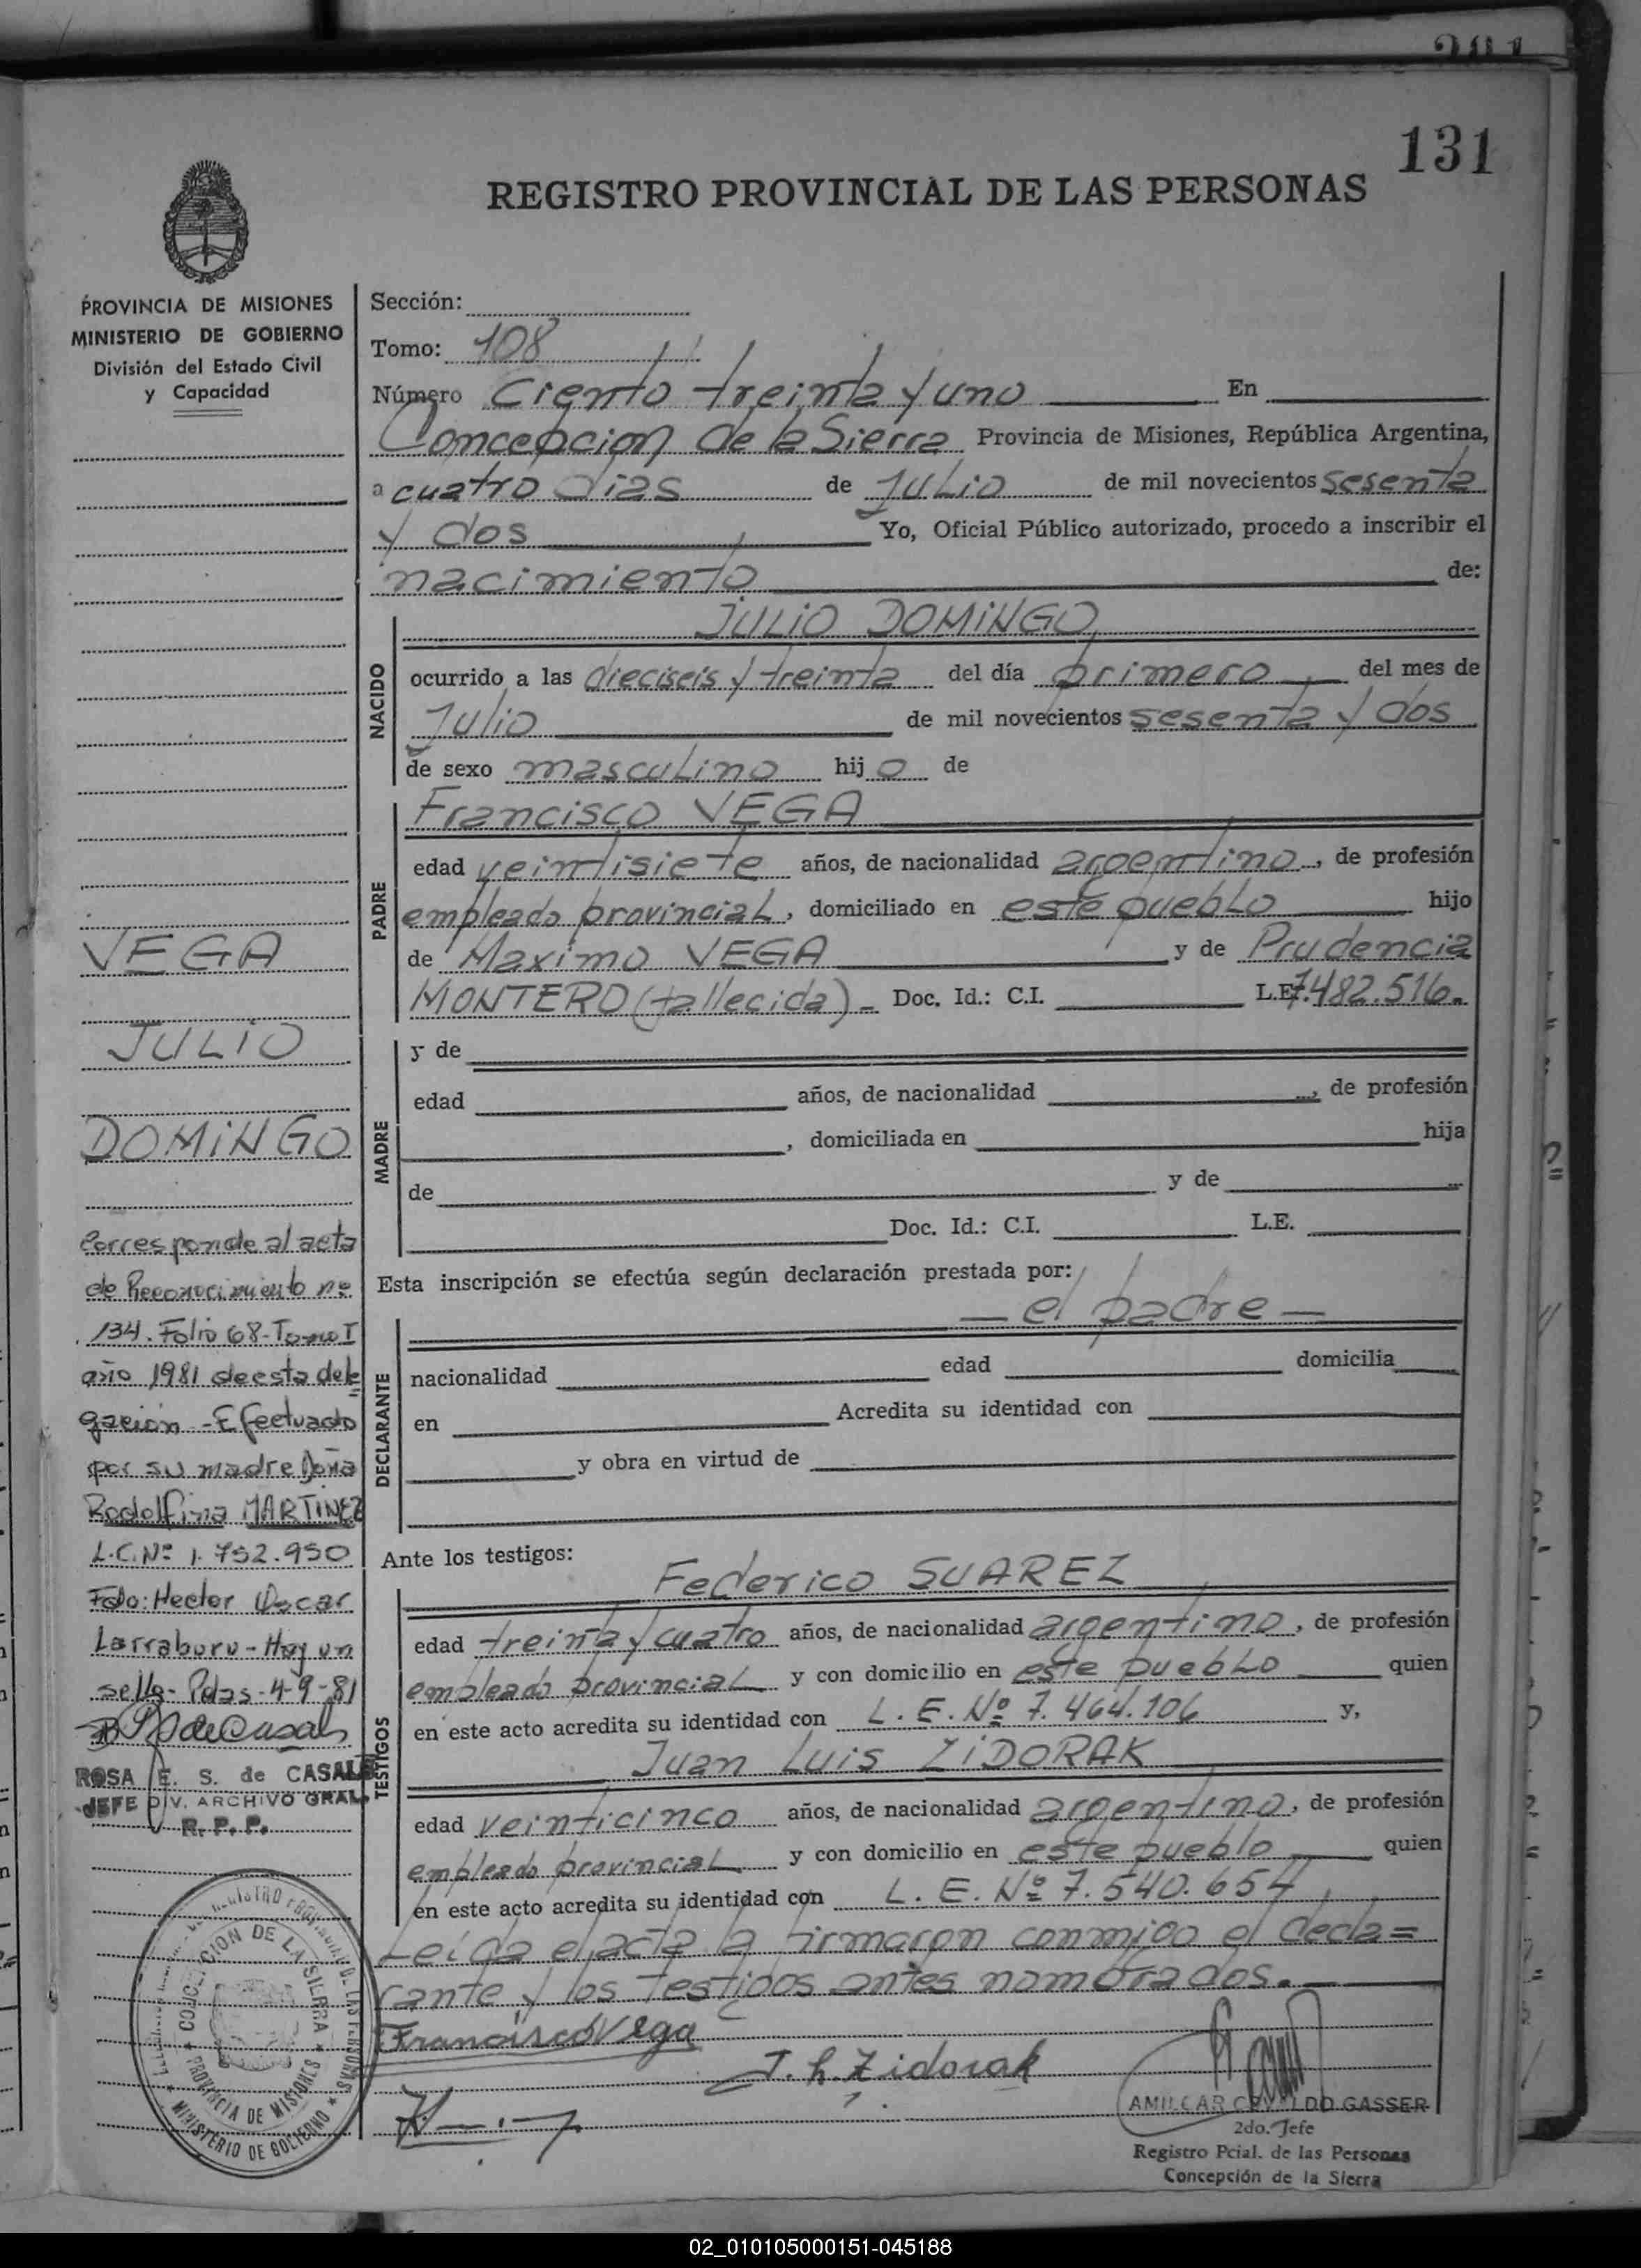 131
REGISTRO PROVINCIAL DE LAS PERSONAS
PROVINCIA DE MISIONES
MINISTERIO DE GOBIERNO
División del Estado Civil
y Capacidad
Sección:
Tomo: 108
Número Ciento treinta y uno En
Concepcion de la Sierra Provincia de Misiones, República Argentina,
a cuatro dias de Julio de mil novecientos sesenta
y dos Yo, Oficial Público autorizado, procedo a inscribir el
nacimiento de:
JULIO DOMINGO
NACIDO
ocurrido a las dieciseis y treinta del día primero del mes de
Julio de mil novecientos sesenta y dos
de sexo masculino hijo de
PADRE
Francisco VEGA
edad veintisiete años, de nacionalidad argentino, de profesión
empleado provincial, domiciliado en este pueblo hijo
de Maximo VEGA y de Prudencia
MONTERO (fallecida)- Doc. Id.: C.I. L.E. 7.482.516.
MADRE
y de
edad años, de nacionalidad , de profesión
, domiciliada en hija
de y de
Doc. Id.: C.I. L.E.
Esta inscripción se efectúa según declaración prestada por:
— el padre —
DECLARANTE
nacionalidad edad domicilia
en Acredita su identidad con
y obra en virtud de
Ante los testigos:
TESTIGOS
Federico SUAREZ
edad treinta y cuatro años, de nacionalidad argentino, de profesión
empleado provincial y con domicilio en este pueblo quien
en este acto acredita su identidad con L. E. Nº 7.464.106 y,
Juan Luis ZIDORAK
edad veinticinco años, de nacionalidad argentino, de profesión
empleado provincial y con domicilio en este pueblo quien
en este acto acredita su identidad con L. E. Nº 7.540.654,
Leida el acta la firmaron conmigo el decla=
rante y los testigos antes nombrados.
Francisco Vega
J. L. Zidorak
AMILCAR GASSER
2do. Jefe
Registro Pcial. de las Personas
Concepción de la Sierra
VEGA
JULIO
DOMINGO
Corresponde al acta
de Reconocimiento nº
134. Folio 68-Tomo I
año 1981 de esta dele
gación - Efectuado
por su madre Doña
Rodolfina MARTINEZ
L.C.Nº 1.752.950
Fdo: Hector Oscar
Larraburu - Hay un
sello- Pdas-4-9-81
ROSA E. S. de CASALS
JEFE DIV. ARCHIVO GRAL.
R. P. P.
REGISTRO PROVINCIAL DE LAS PERSONAS
CONCEPCION DE LA SIERRA
PROVINCIA DE MISIONES
MINISTERIO DE GOBIERNO
02_010105000151-045188